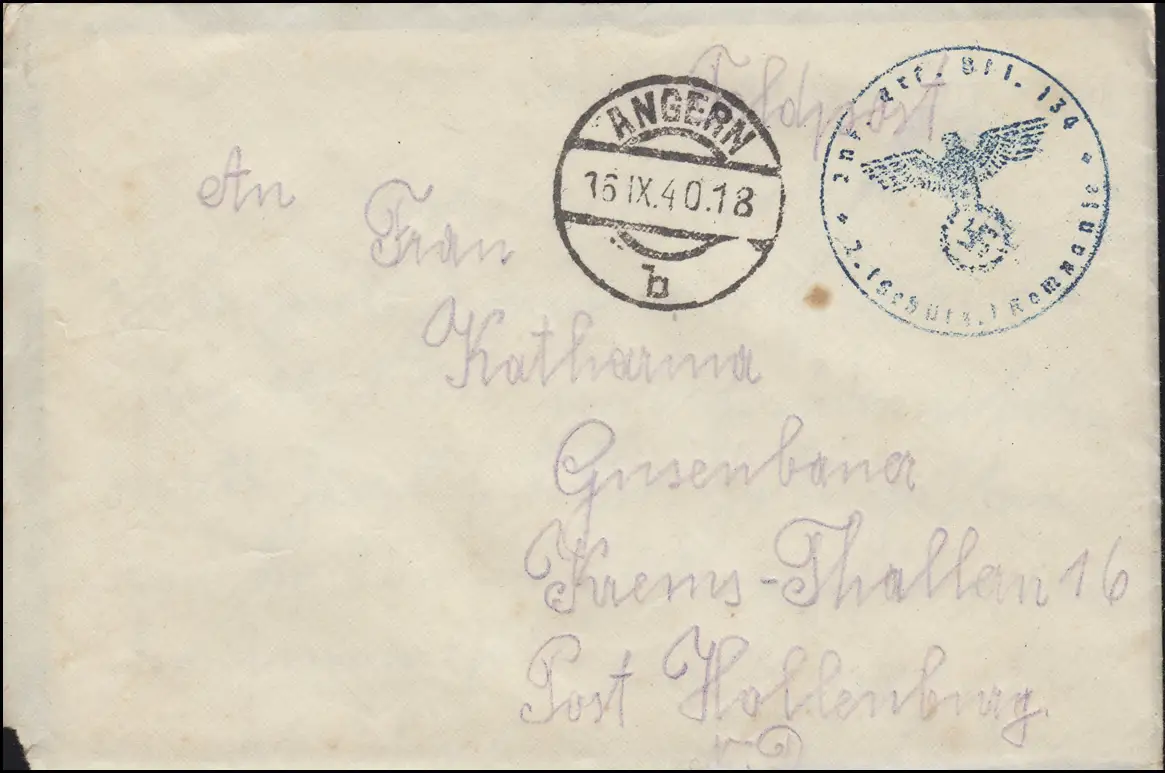 Feldpost
ANGERN
16.IX.40.18
b
Inf. Ers. Btl. 134
2. (Schütz.) Komp.
An
Frau
Katharina
Gusenbauer
Krems-Thallern 16
Post Hollenburg.
N.D.